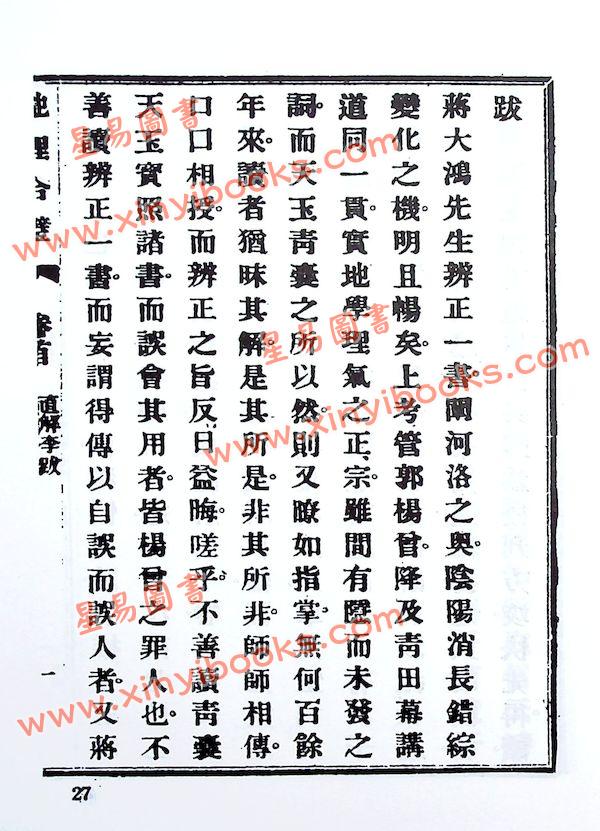 跋
蔣大鴻先生辨正一書。闡河洛之奧。陰陽消長錯綜
變化之機。明且暢矣。上考管郭楊曾。降及青田幕講
道同一貫。實地學理氣之正宗。雖間有隱而未發之
詞。而天玉青囊之所以然。則又瞭如指掌。無何百餘
年來。讀者猶昧其解。是其所是。非其所非。師師相傳。
口口相授。而辨正之旨反日益晦。嗟乎。不善讀青囊
天玉寶照諸書。而誤會其用者。皆楊曾之罪人也。不
善讀辨正一書。而妄謂得傳以自誤而誤人者。又蔣
地理合璧 卷首 直解李跋 一
27
星易圖書
www.xinyibooks.com
星易圖書
www.xinyibooks.com
星易圖書
www.xinyibooks.com